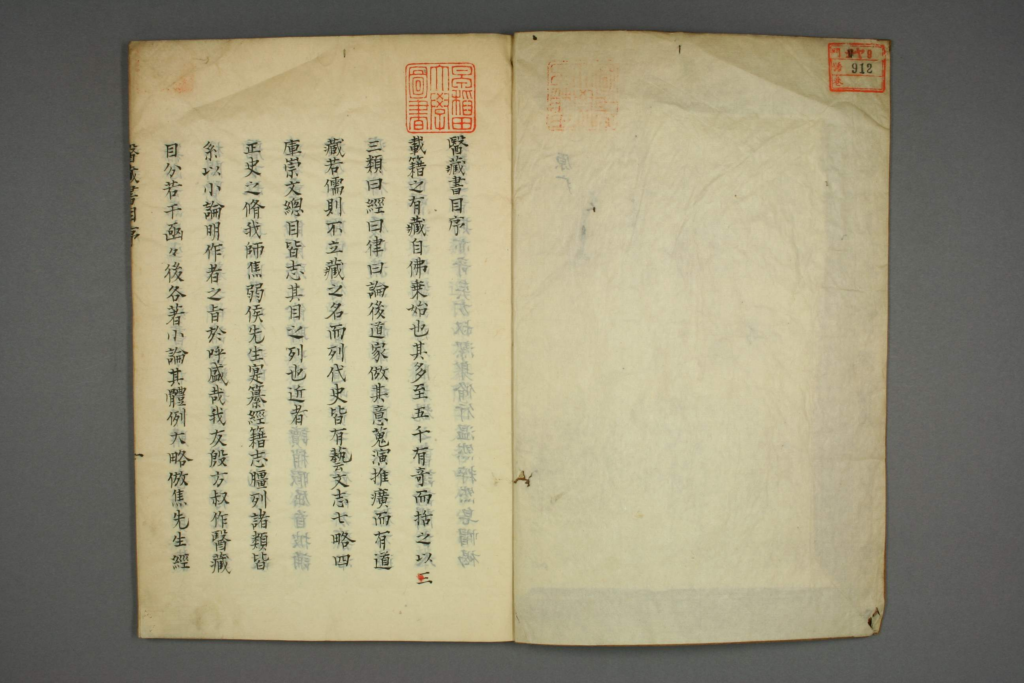 912
早稲田大学圖書
醫藏書目序
載籍之有藏自佛乗始也其多至五千有奇而括之以三
三類曰經曰律曰論後道家倣其意蒐演推廣而有道
藏若儒則不立藏之名而列代史皆有藝文志七略四
庫崇文總目皆志其目之列也近者
正史之脩我師焦弱侯先生寔纂經籍志臚列諸類皆
糸以小論明作者之旨於呼盛哉我友殷方叔作醫藏
目分若干函々後各著小論其體例大略倣焦先生經
醫藏書目序
一